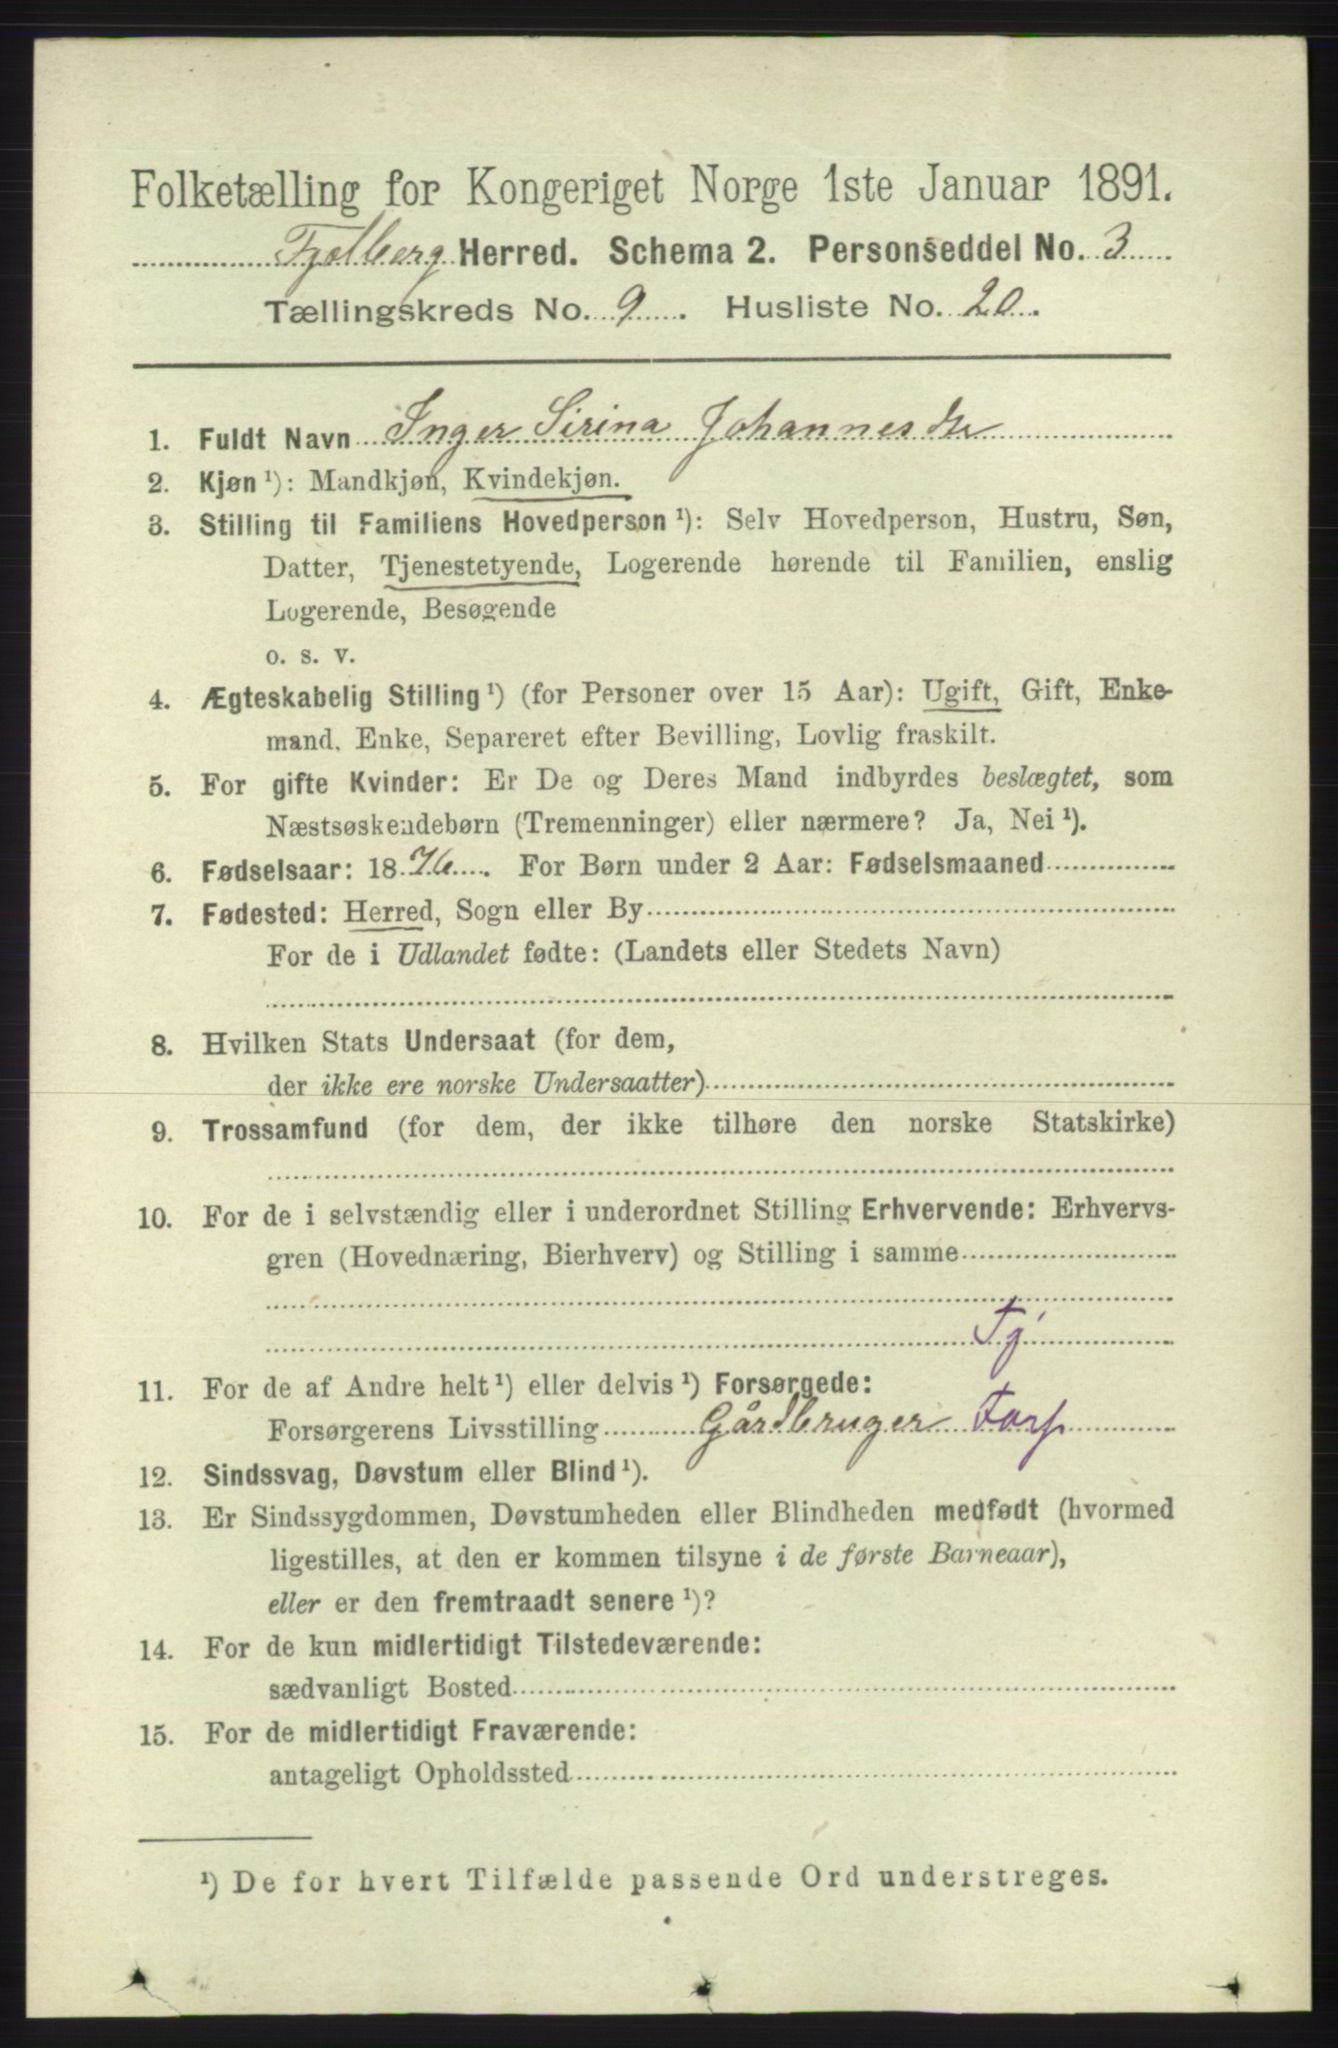 Folketælling for Kongeriget Norge 1ste Januar 1891.
Fjelberg Herred. Schema 2. Personseddel No. 3
Tællingskreds No. 9. Husliste No. 20.
1. Fuldt Navn Inger Sirina Johannesdtr
2. Kjøn ¹): Mandkjøn, Kvindekjøn.
3. Stilling til Familiens Hovedperson ¹): Selv Hovedperson, Hustru, Søn,
Datter, Tjenestetyende, Logerende hørende til Familien, enslig
Logerende, Besøgende
o. s. v.
4. Ægteskabelig Stilling ¹) (for Personer over 15 Aar): Ugift, Gift, Enke-
mand, Enke, Separeret efter Bevilling, Lovlig fraskilt.
5. For gifte Kvinder: Er De og Deres Mand indbyrdes beslægtet, som
Næstsøskendebørn (Tremenninger) eller nærmere? Ja, Nei ¹).
6. Fødselsaar: 1876. For Børn under 2 Aar: Fødselsmaaned
7. Fødested: Herred, Sogn eller By
For de i Udlandet fødte: (Landets eller Stedets Navn)
8. Hvilken Stats Undersaat (for dem,
der ikke ere norske Undersaatter)
9. Trossamfund (for dem, der ikke tilhøre den norske Statskirke)
10. For de i selvstændig eller i underordnet Stilling Erhvervende: Erhvervs-
gren (Hovednæring, Bierhverv) og Stilling i samme
Tj
11. For de af Andre helt ¹) eller delvis ¹) Forsørgede:
Forsørgerens Livsstilling Gårdbruger Fors
12. Sindssvag, Døvstum eller Blind ¹).
13. Er Sindssygdommen, Døvstumheden eller Blindheden medfødt (hvormed
ligestilles, at den er kommen tilsyne i de første Barneaar),
eller er den fremtraadt senere ¹)?
14. For de kun midlertidigt Tilstedeværende:
sædvanligt Bosted
15. For de midlertidigt Fraværende:
antageligt Opholdssted
¹) De for hvert Tilfælde passende Ord understreges.